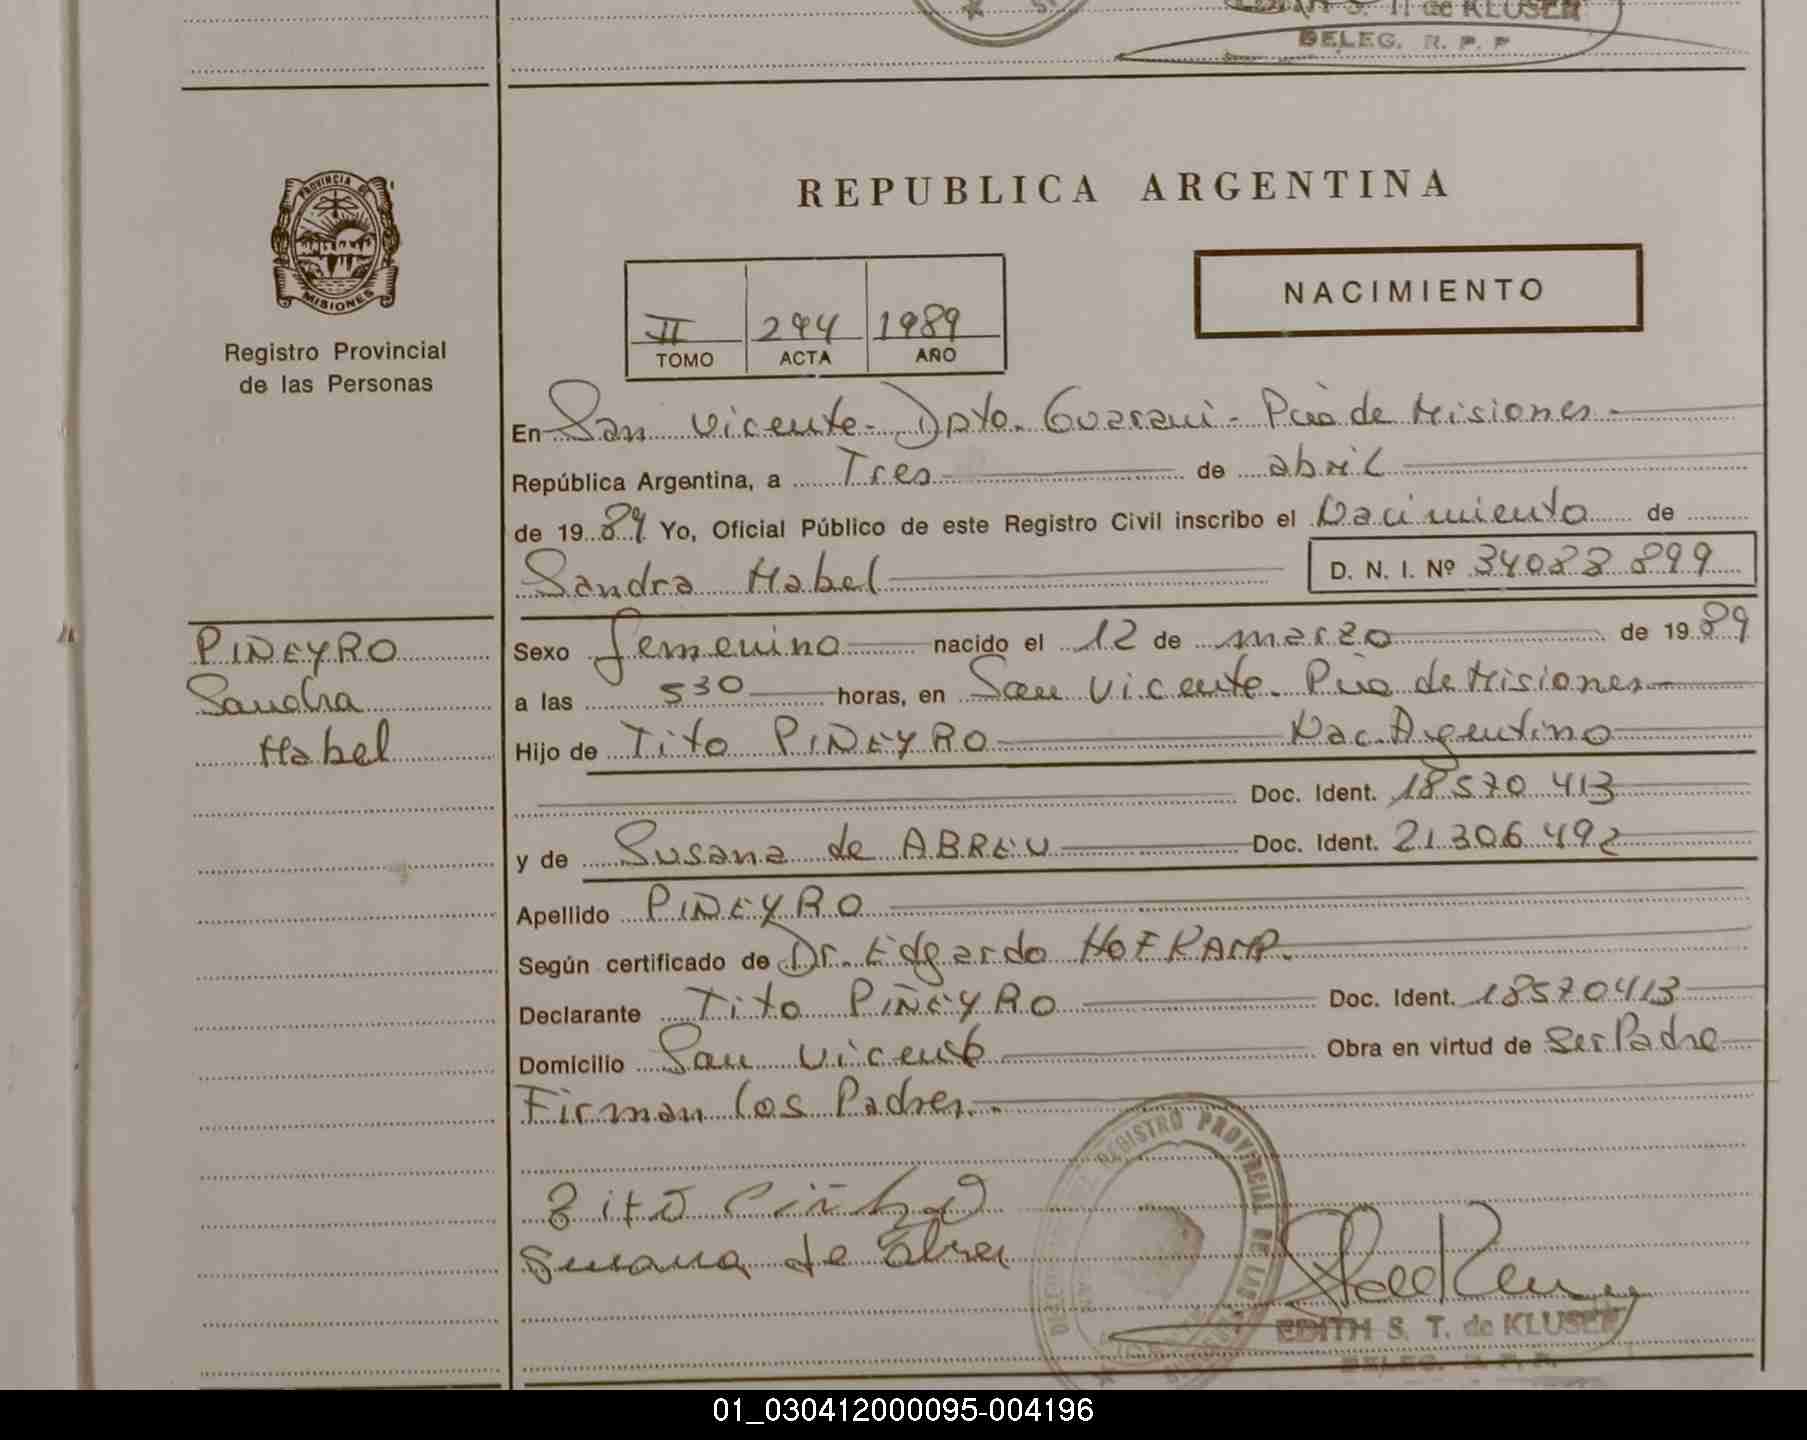 S. T. de KLUSER
DELEG. R. P. P
PROVINCIA DE
MISIONES
Registro Provincial
de las Personas
REPUBLICA ARGENTINA
NACIMIENTO
II 294 1989
TOMO ACTA AÑO
En San Vicente - Dpto. Guarani - Pcia de Misiones -
República Argentina, a Tres de abril
de 1989 Yo, Oficial Público de este Registro Civil inscribo el Nacimiento de
Sandra Mabel D. N. I. Nº 34088899
PIÑEYRO
Sandra
Mabel
Sexo femenino nacido el 12 de marzo de 1989
a las 530 horas, en San Vicente. Pcia de Misiones
Hijo de Tito PIÑEYRO Nac. Argentino
Doc. Ident. 18570413
y de Susana de ABREU Doc. Ident. 21.306.492
Apellido PIÑEYRO
Según certificado de Dr. Edgardo HOFKAMP.
Declarante Tito PIÑEYRO Doc. Ident. 18570413
Domicilio San Vicente Obra en virtud de ser Padre
Firman los Padres.
Susana de Abreu
REGISTRO PROVINCIAL DE LAS
EDITH S. T. de KLUSER
DELEG. R. P. P.
01_030412000095-004196